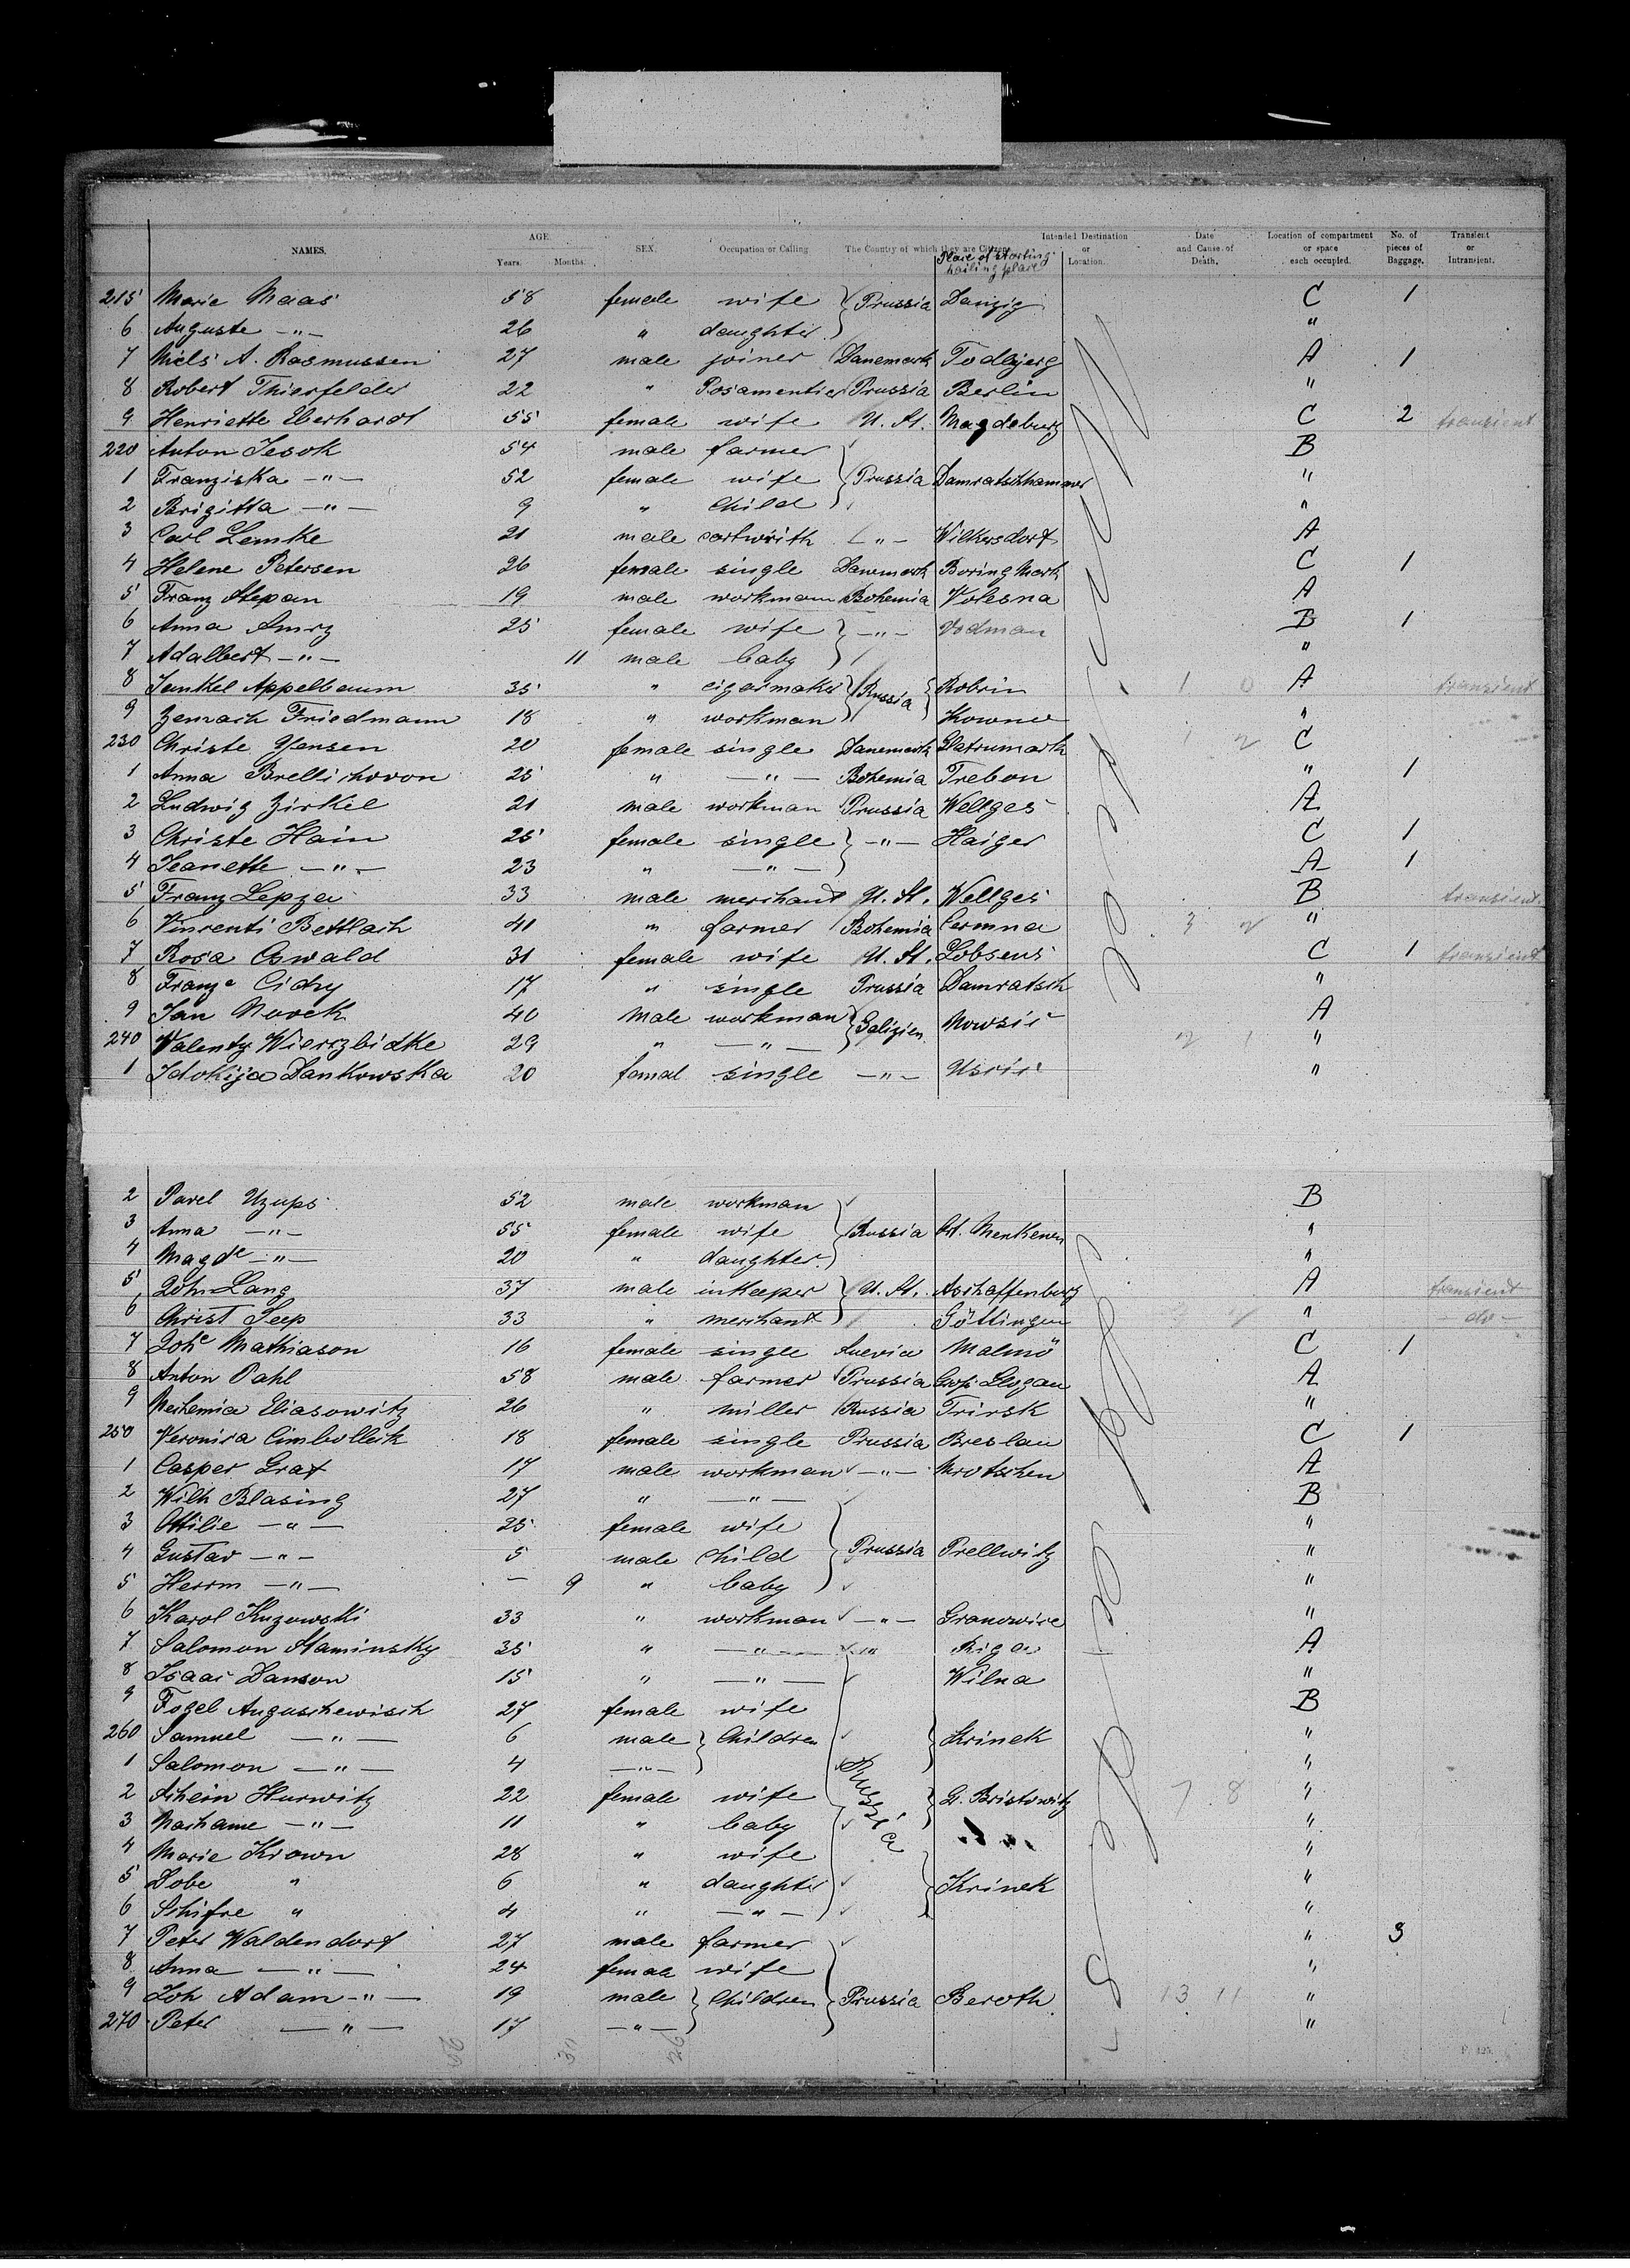 NAMES. AGE. Years. Months. SEX. Occupation or Calling The Country of which they are Citizens Place of Starting hailing place Intended Destination or Location. Date and Cause of Death. Location of compartment or space each occupied. No. of pieces of Baggage. Transient or Intransient.
215 Marie Maas 58 female wife Prussia Danzig C 1
6 Auguste -"- 26 " daughter "
7 Niels A. Rasmussen 27 male joiner Danemark Todbjerg A 1
8 Robert Thierfelder 22 " Posamentier Prussia Berlin "
9 Henriette Eberhardt 55 female wife U. St. Magdeburg C 2 transient
220 Anton Jesok 54 male farmer B
1 Franziska -"- 52 female wife Prussia Damratschhammer "
2 Brigitta -"- 9 " child "
3 Carl Lemke 21 male cartwrith -"- Wilkersdorf A
4 Helene Petersen 26 female single Danemark Boring Mark C 1
5 Franz Stepan 19 male workmann Bohemia Volesna A
6 Anna 25 female wife -"- Vodman B 1
7 Adalbert -"- 11 male baby "
8 Jankel Appelbaum 35 " cigarmaker Russia Kobrin 1 0 A transient
9 Zemach Friedmann 18 " workman Kowno "
230 Christe Jensen 20 female single Danemark 1 2 C
1 Anna 25 " -"- Bohemia Trebon " 1
2 Ludwig Zirkel 21 male workman Prussia Wellges A
3 Christe Hain 25 female single -"- Haiger C 1
4 Jeanette -"- 23 " -"- A 1
5 Franz Lepza 33 male merchant U. St. Wellges B transient
6 Vincenti Bettlach 41 " farmer Bohemia Cermna 3 2 "
7 Rosa Oswald 31 female wife U. St. Lobsens C 1 transient
8 Franz^a Cichy 17 " single Prussia Damratsch "
9 Jan Nowek 40 Male workman Galizien Nowsic A
240 Valenty Wierszbidke 29 " -"- 2 1 "
1 Dankowska 20 femal single -"- "
2 Pavel Uzups 52 male workman B
3 Anna -"- 55 female wife Russia "
4 Magde -"- 20 " daughter "
5 Joh. Lang 37 male inkeeper U. St. Aschaffenburg A transient
6 Christ Seep 33 " merchant Göttingen " - do -
7 Joh^e Mathiason 16 female single Suevia Malmö C 1
8 Anton Pahl 58 male farmer Prussia Groß Glogau A
9 Nechemia Eliasowitz 26 " miller Russia Trirsk "
250 Veronica Cimbollek 18 female single Prussia Breslau C 1
1 Casper Graf 17 male workman -"- Mrotschen A
2 Wilh Blasing 27 " -"- B
3 Ottilie -"- 25 female wife "
4 Gustav -"- 5 male child Prussia Prellwitz "
5 Herrm -"- - 9 " baby "
6 Karol Kuzowski 33 " workman -"- Granowice "
7 Salomon Staminsky 35 " -"- " Riga A
8 Isaac Danson 15 " -"- Wilna "
9 Fogel Auguschewisch 27 female wife B
260 Samuel -"- 6 male Children Krinek "
1 Salomon -"- 4 -"- Russia "
2 Hurwitz 22 female wife 7 8 "
3 Nachame -"- 11 " baby "
4 Marie Krown 28 " wife "
5 Dobe " 6 " daughter Krinek "
6 Schifre " 4 " -"- "
7 Peter Waldendorf 27 male farmer " 3
8 Anna -"- 24 female wife "
9 Joh Adam -"- 19 male Children Prussia Beroth 13 11 "
270 Peter -"- 17 -"- "
30 26